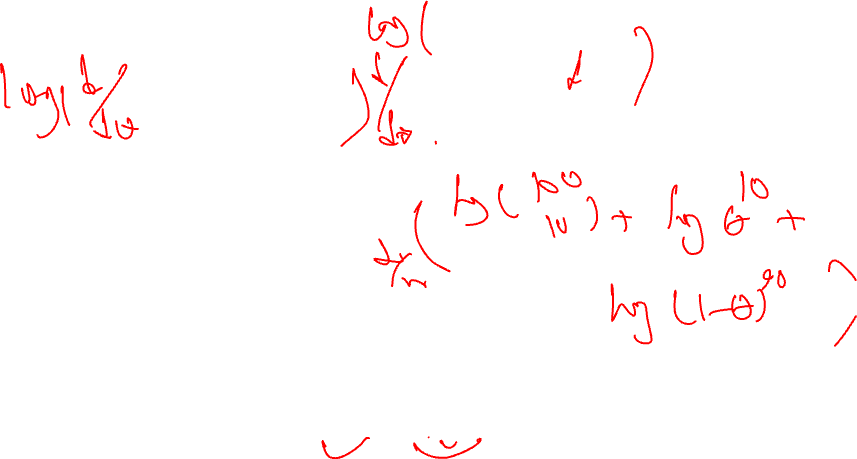 log(
log( d/dθ ) d/dθ . )
d/dθ ( log(100 10) + log θ^10 +
log (1-θ)^90 )